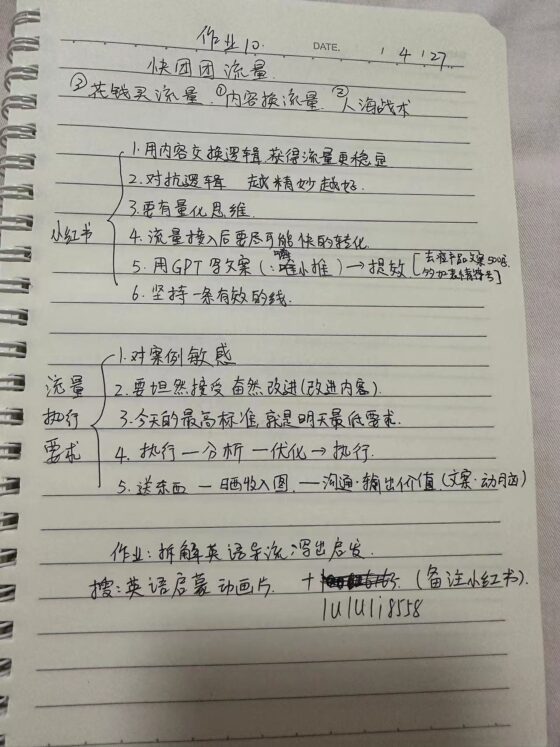 作业10. DATE. 1 4 1 27
快团团流量
③花钱买流量. ①内容换流量. ②人海战术
小红书
1. 用内容交换逻辑, 获得流量更稳定
2. 对抗逻辑 越精妙越好.
3. 要有量化思维.
4. 流量接入后要尽可能快的转化.
5. 用GPT写文案(:嘴小推)→提效[去推产品文案500名.
多加表情符号]
6. 坚持一条有效的线.
流量
执行
要求
1. 对案例敏感
2. 要坦然接受 奋然改进(改进内容).
3. 今天的最高标准, 就是明天最低要求.
4. 执行一分析一优化→执行.
5. 送东西 一晒收入图. 一沟通·输出价值(文案·动脑)
作业:拆解英语导流, 写出启发.
搜:英语启蒙动画片. + (备注小红书).
lululi8558